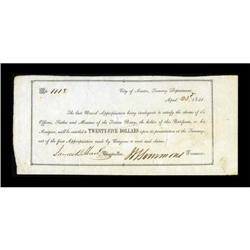 No 1118 City of Austin, Treasury Department,
April 23d 1841
The last Naval Appropriation being inadequate to satisfy the claims of the
Officers, Sailors and Marines of the Texian Navy, the holder of this Certificate, or his
Assigns, will be entitled to TWENTY-FIVE DOLLARS upon its presentation at the Treasury,
out of the first Appropriation made by Congress to meet said claims.
Comptroller Simmons Treasurer